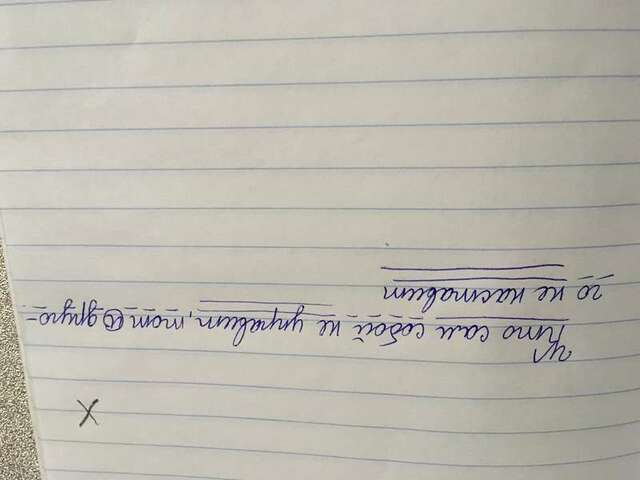 X
Кто сам собой не управит, тот и друго-
го не наставит